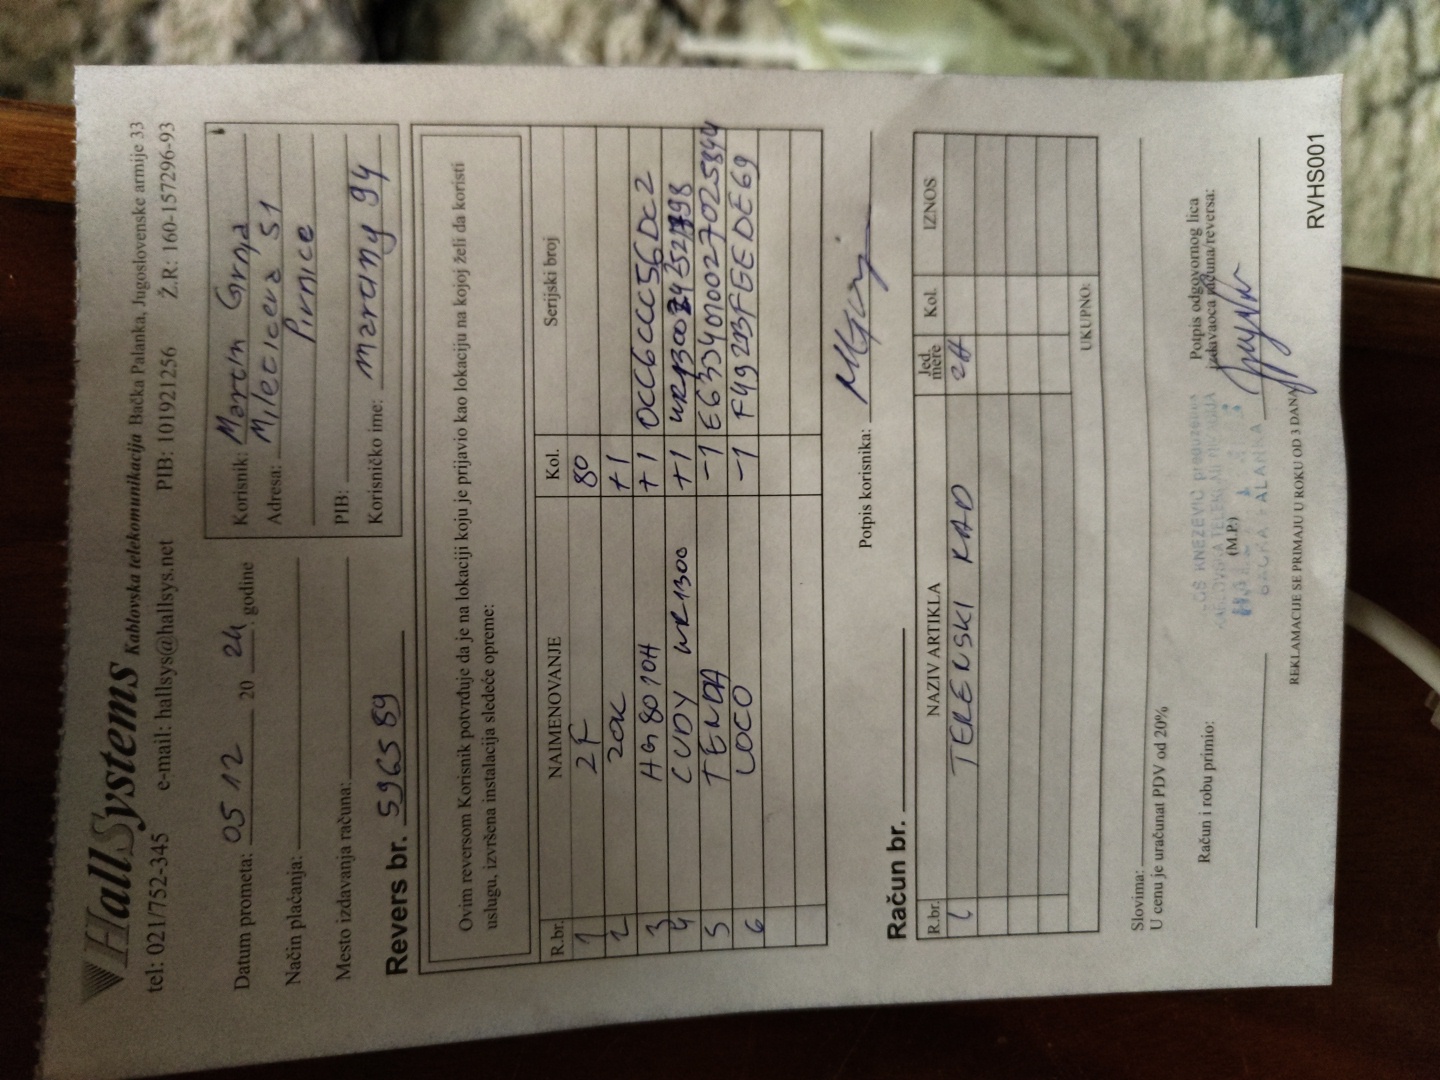 HallSystems Kablovska telekomunikacija Bačka Palanka, Jugoslovenske armije 33
tel: 021/752-345 e-mail: hallsys@hallsys.net PIB: 101921256 Ž.R: 160-157296-93
Datum prometa: 05 12 20 24. godine
Način plaćanja:
Mesto izdavanja računa:
Korisnik: Marcin Grnja
Adresa: Mileticeva 51
Pivnice
PIB:
Korisničko ime: marciny 94
Revers br. 596589
Ovim reversom Korisnik potvrđuje da je na lokaciji koju je prijavio kao lokaciju na kojoj želi da koristi
uslugu, izvršena instalacija sledeće opreme:
R.br. NAIMENOVANJE Kol. Serijski broj
1 2F 80
2 20K +1
3 HG8010H +1 0CC6CCC56DC2
4 CUDY WR1300 +1
5 TENDA -1 E6334010027025844
6 LOCO -1 F492BFGEDE69
Potpis korisnika:
Račun br.
R.br. NAZIV ARTIKLA Jed. mere Kol. IZNOS
1 TERENSKI RAD
UKUPNO:
Slovima:
U cenu je uračunat PDV od 20%
Račun i robu primio:
(M.P.)
Potpis odgovornog lica
izdavaoca računa/reversa:
REKLAMACIJE SE PRIMAJU U ROKU OD 3 DANA
RVHS001